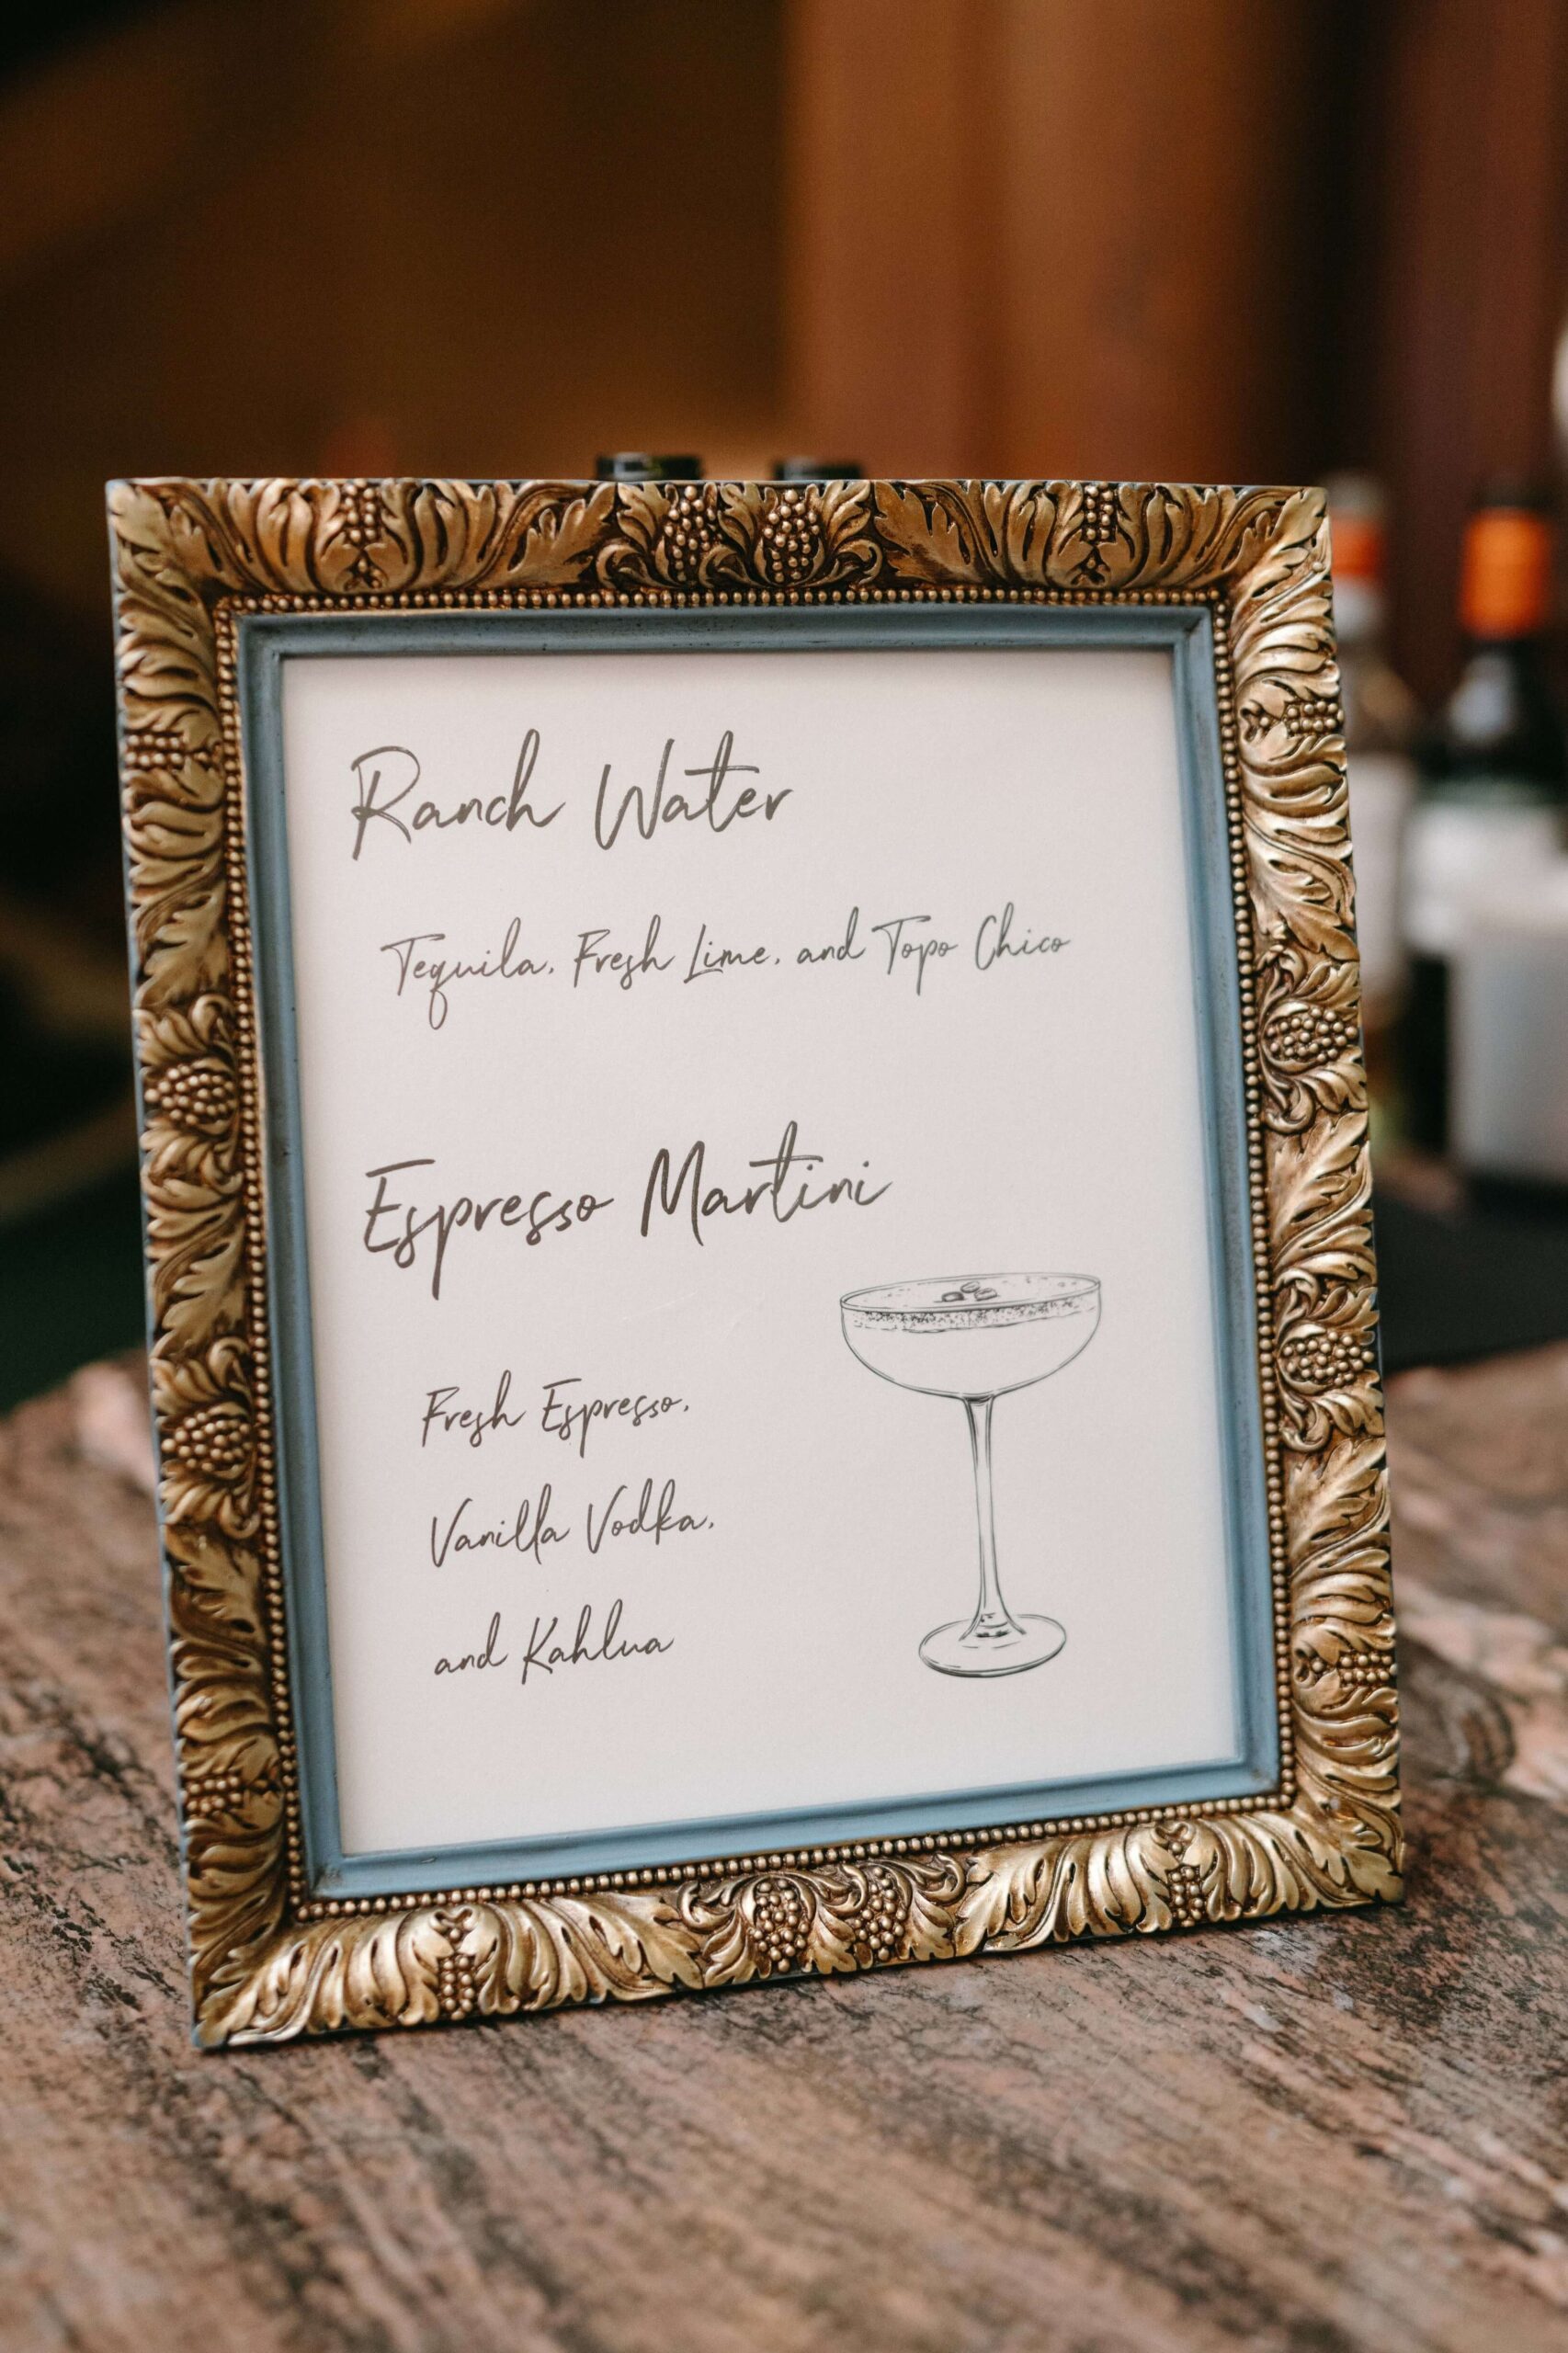 Ranch Water
Tequila, Fresh Lime, and Topo Chico
Espresso Martini
Fresh Espresso,
Vanilla Vodka,
and Kahlua